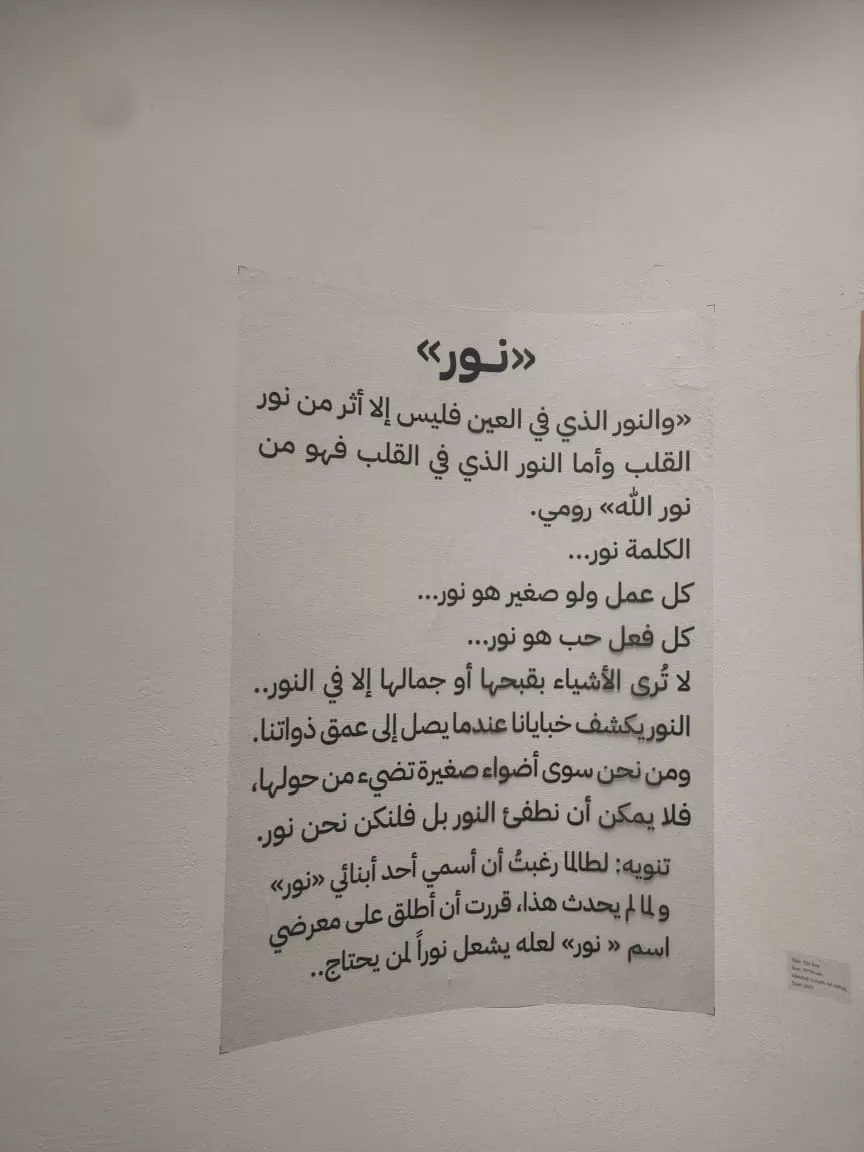 «نور»
«والنور الذي في العين فليس إلا أثر من نور
القلب وأما النور الذي في القلب فهو من
نور الله» رومي.
الكلمة نور...
كل عمل ولو صغير هو نور...
كل فعل حب هو نور...
لا تُرى الأشياء بقبحها أو جمالها إلا في النور..
النور يكشف خبايانا عندما يصل إلى عمق ذواتنا.
ومن نحن سوى أضواء صغيرة تضيء من حولها،
فلا يمكن أن نطفئ النور بل فلنكن نحن نور.
تنويه: لطالما رغبتُ أن أسمي أحد أبنائي «نور»
و لما لم يحدث هذا، قررت أن أطلق على معرضي
اسم « نور» لعله يشعل نوراً لمن يحتاج..